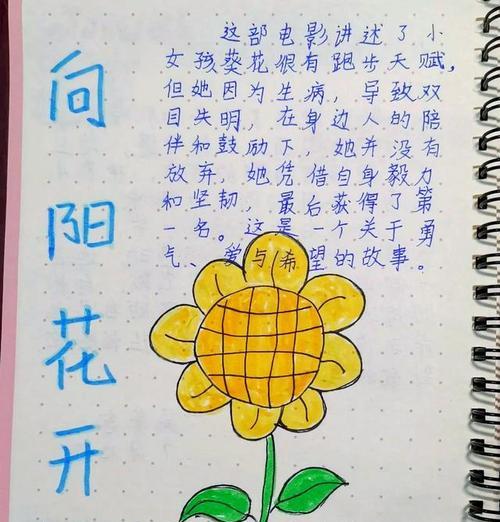 向阳花开
这部电影讲述了小
女孩葵花很有跑步天赋,
但她因为生病，导致双
目失明，在身边人的陪
伴和鼓励下，她并没有
放弃，她凭借自身毅力
和坚韧，最后获得了第
一名。这是一个关于勇
气、爱与希望的故事。